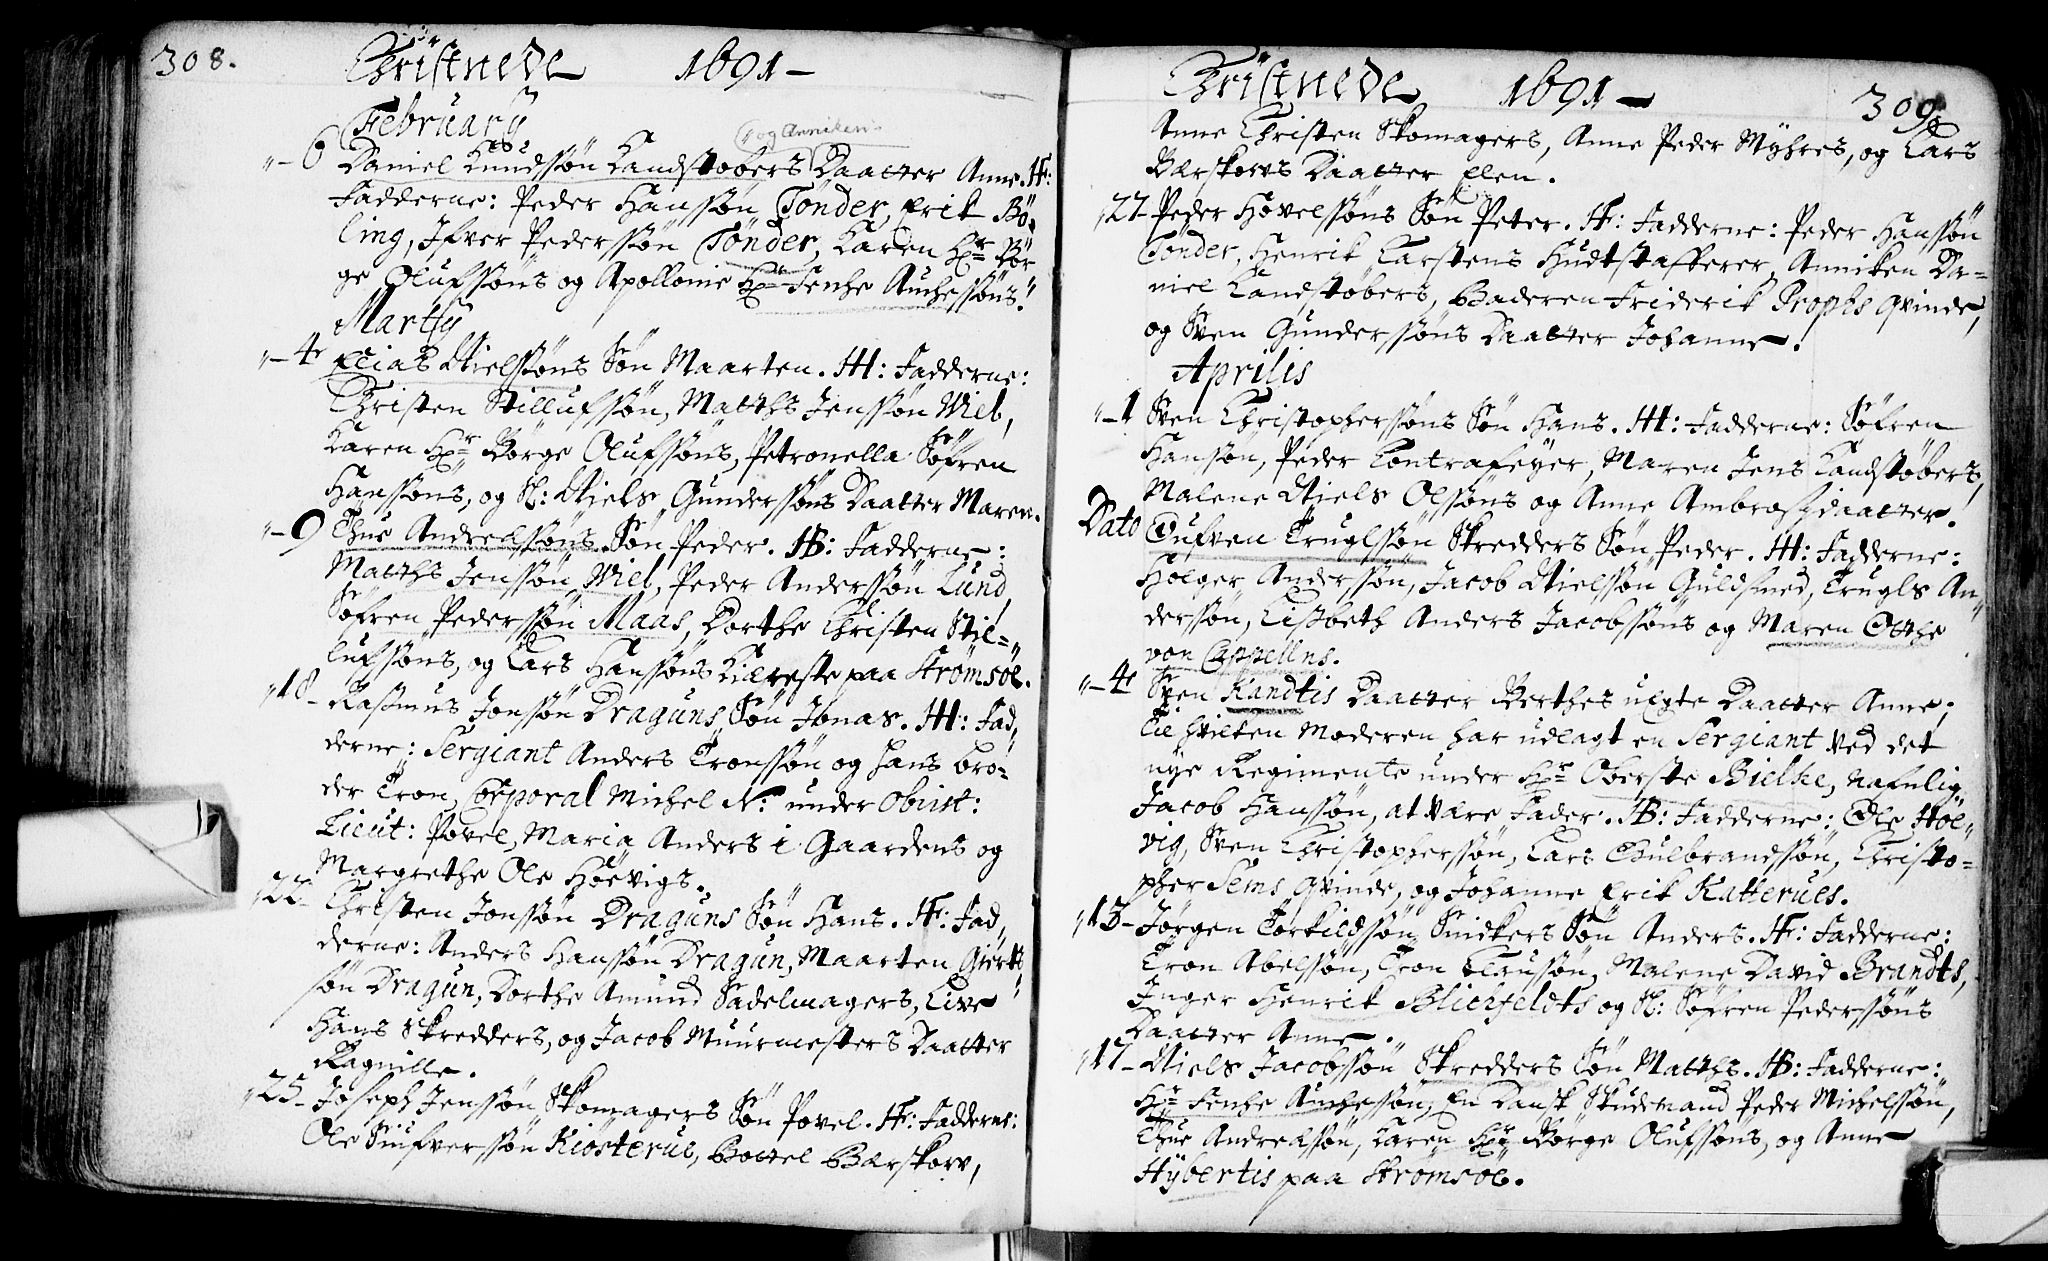 308.
Christnede 1691 -
February
og Anniken
"- 6 Daniel Knudssøn Kandstøbers Daatter Anne. H:
Fadderne: Peder Hanssøn Tønder, Erik Bö-
ling, Ifver Pederssøn Tønder, Karen Hr Bør
ge Olufssøns og Apollonie Hr Fenhe Auchessøns.
Martij
"- 4 Elias Nielssøns Søn Maarten. H: Fadderne:
Christen Stillufssøn, Matths Jenssøn Wiel,
Karen Hr Børge Olufssøns, Petronella Søfren
Hanssøns, og Sl: Niels Gunderssøns Daatter Maren.
"- 9 Thue Andreassøns Søn Peder. HB: Fadderne:
Matths Jenssøn Wiel, Peder Anderssøn Lund,
Søfren Pederssøn Maas, Dorthe Christen Stil-
lufssøns, og Lars Hanssøns Kiæreste paa Strømsøe.
"18- Rasmus Jonssøn Draguns Søn Jonas. H: Fad,
derne: Sergiant Anders Tronssøn og hans bro-
der Tron, Corporal Michel N: under Obrist:
Lieut: Povel, Maria Anders i Gaardens og
Margrethe Ole Høevigs.
"22- Christen Jonssøn Draguns Søn Hans. H: Fad,
derne: Anders Hanssøn Dragun, Maarten Giert
søn Dragun, Dorthe Amund Sadelmagers, Live
Hans Skredders, og Jacob Muurmesters Daatter
Ragnille.
"25- Joseph Jenssøn Skomagers Søn Povel. H: Fadderne:
Ole Siufverssøn Kiosterud, Bottel Bærskov,
Christnede 1691 - 309.
Anne Christen Skomagers, Anne Peder Myhres, og Lars
Bærskovs Daatter Elen.
"27- Peder Høvelssøns Søn Peter. H: Fadderne: Peder Hanssøn
Tønder, Henrik Carstens Hudtstafferer, Anniken Da-
niel Kandstøbers, Baderen Friderik Prophs qvinde,
og Sven Gunderssøns Daatter Johanne.
Aprilis
"- 1 Sven Christopherssøns Søn Hans. H: Fadderne: Søfren
Hanssøn, Peder Contrafeyer, Maren Jens Kandstøbers,
Malene Niels Olssøns og Anne Ambrosii daatter.
Dato Gufven Truglssøn Skredders Søn Peder. H: Fadderne:
Holger Anderssøn, Jacob Nielssøn Guldsmed, Trugls An
derssøn, Lisbeth Anders Jacobssøns og Maren Otthe
von Cappellns.
"- 4 Sven Kandtis Daatter Berthes uegte Daatter Anne;
til hvilken Moderen har udlagt en Sergiant ved det
nye Regimente under Hr Oberste Bielke, nafnlig
Jacob Hanssøn, at være Fader. HB: Fadderne: Ole Höl-
vig, Sven Christopherssøn, Lars Gulbrandssøn, Christo-
pher Sems qvinde, og Johanne Erik Katterues.
"13- Jørgen Torkildssøn Snidkers Søn Anders. H: Fadderne:
Tron Abelssøn, Tron Claussøn, Malene David Brandts,
Inger Henrik Blichfeldts og Sl: Søfren Pederssøns
Daatter Anne.
"17- Niels Jacobssøn Skredders Søn Matths. HB: Fadderne:
Hr Fenhe Auchessøn, En Dansk Skudemand Peder Michelssøn,
Thue Andreassøn, Karen Hr Børge Olufssøns, og Anne
Hybertis paa Strømsøe.